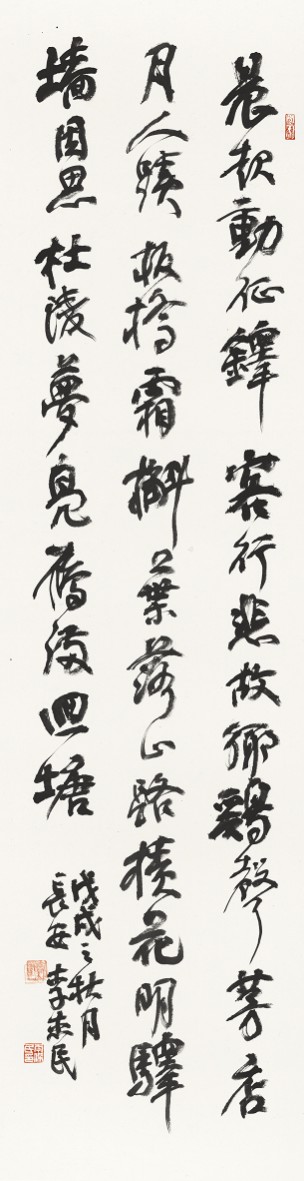 晨起動征鐸客行悲故鄉鷄聲茅店
月人蹟板橋霜槲葉落山路花明驛
墻因思杜陵夢鳧雁滿回塘
戊戌之秋月
長安李民